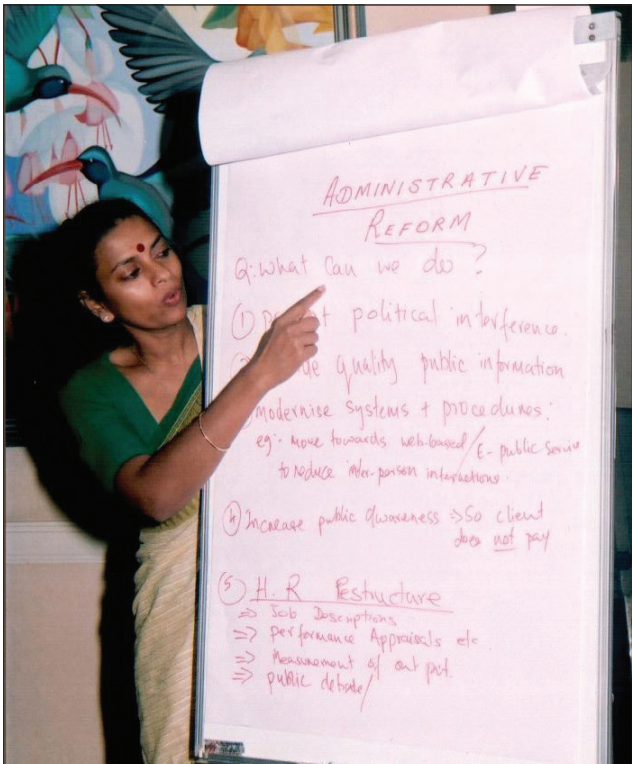 ADMINISTRATIVE
REFORM
Q: What can we do?
① political interference.
quality public information
Modernise systems + procedures:
eg:- Move towards web-based / E-public service
to reduce inter-person interactions.
④ Increase public awareness => So client
does not pay
⑤ H.R Restructure
=> Job Descriptions
=> performance Appraisals etc
=> Measurement of out put.
=> public debate/